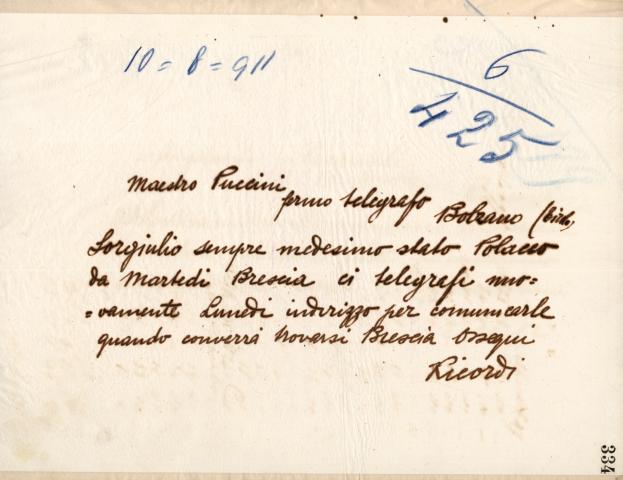 10 = 8 = 911
6
425
Maestro Puccini
fermo telegrafo
Bolzano (Tirolo)
Sorgiulio sempre medesimo stato Polacco
da Martedi Brescia ci telegrafi nuo=
=vamente Lunedi indirizzo per comunicarle
quando converrà trovarsi Brescia Ossequi
Ricordi
334